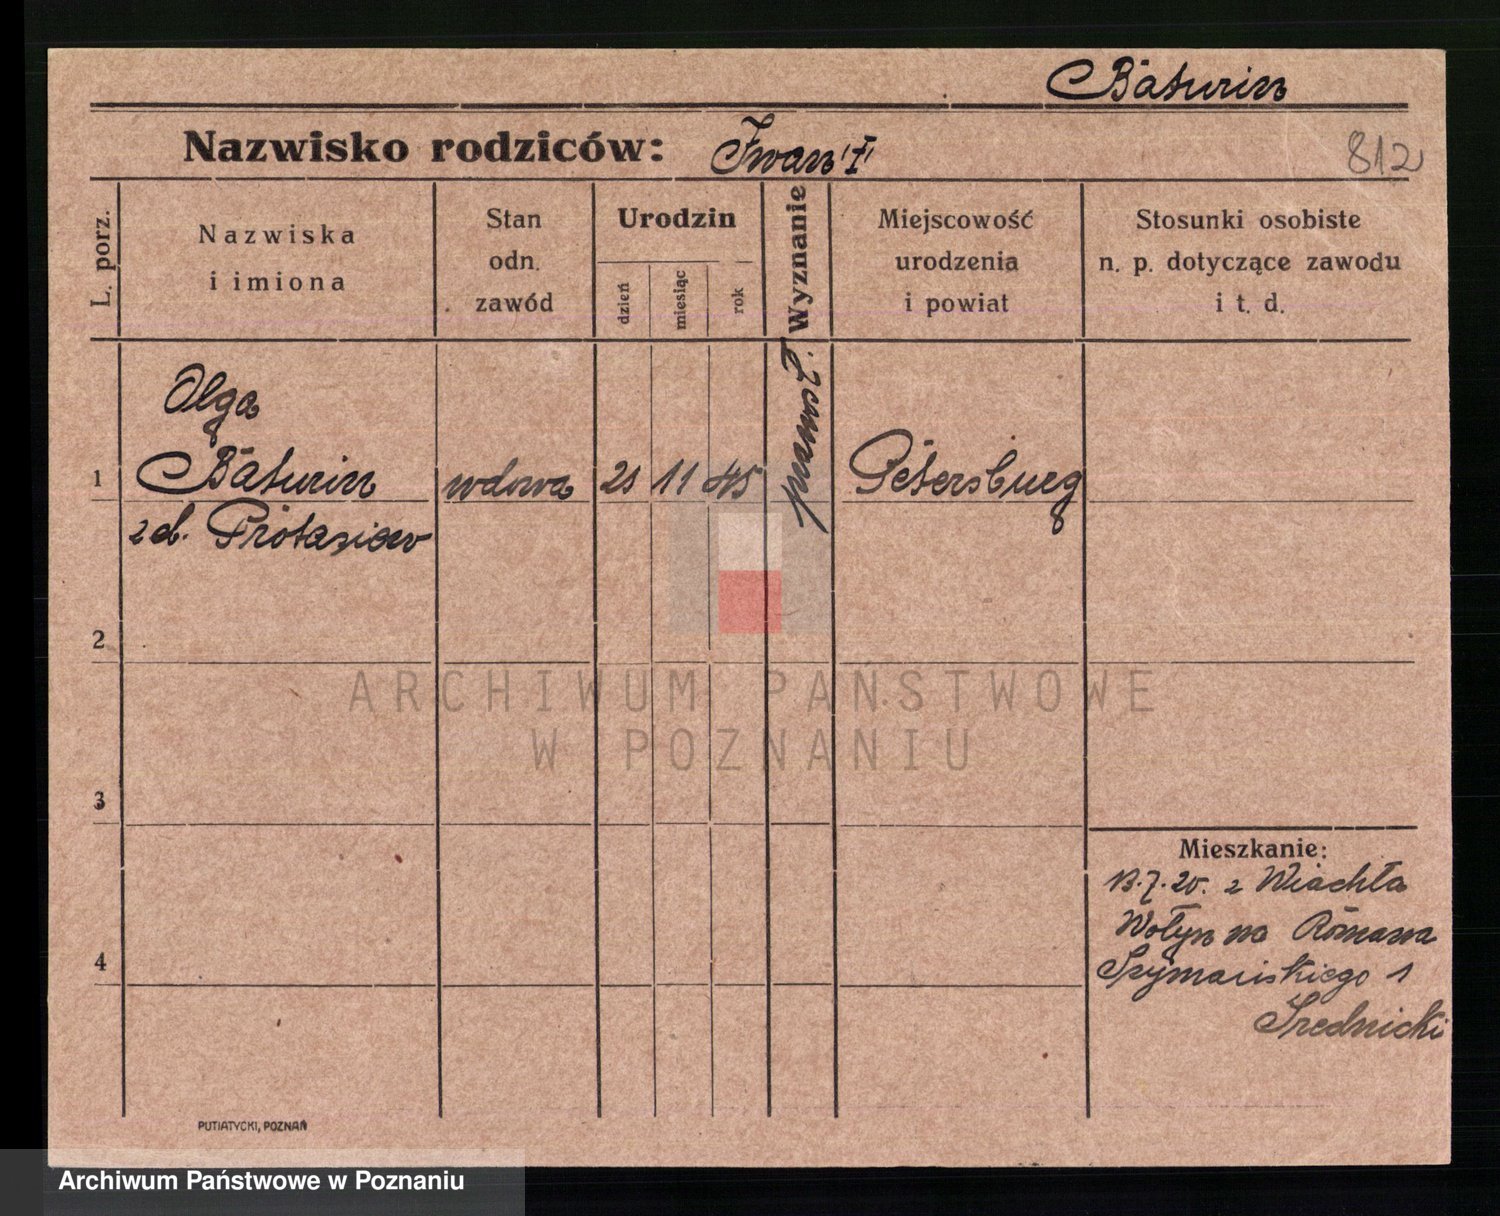 Baturin
Nazwisko rodziców: Iwan 'I'
812
L. porz.
Nazwiska
i imiona
Stan
odn.
zawód
Urodzin
dzień
miesiąc
rok
Wyznanie
Miejscowość
urodzenia
i powiat
Stosunki osobiste
n. p. dotyczące zawodu
i t. d.
Olga
1 Baturin wdowa 21 11 45 prawosł. Petersburg
z d. Protasiew
2
3
4
Mieszkanie:
13.7.20. z Wiachła
Wołyn na Romana
Szymańskiego 1
Średnicki
PUTIATYCKI, POZNAŃ
ARCHIWUM PAŃSTWOWE
W POZNANIU
Archiwum Państwowe w Poznaniu